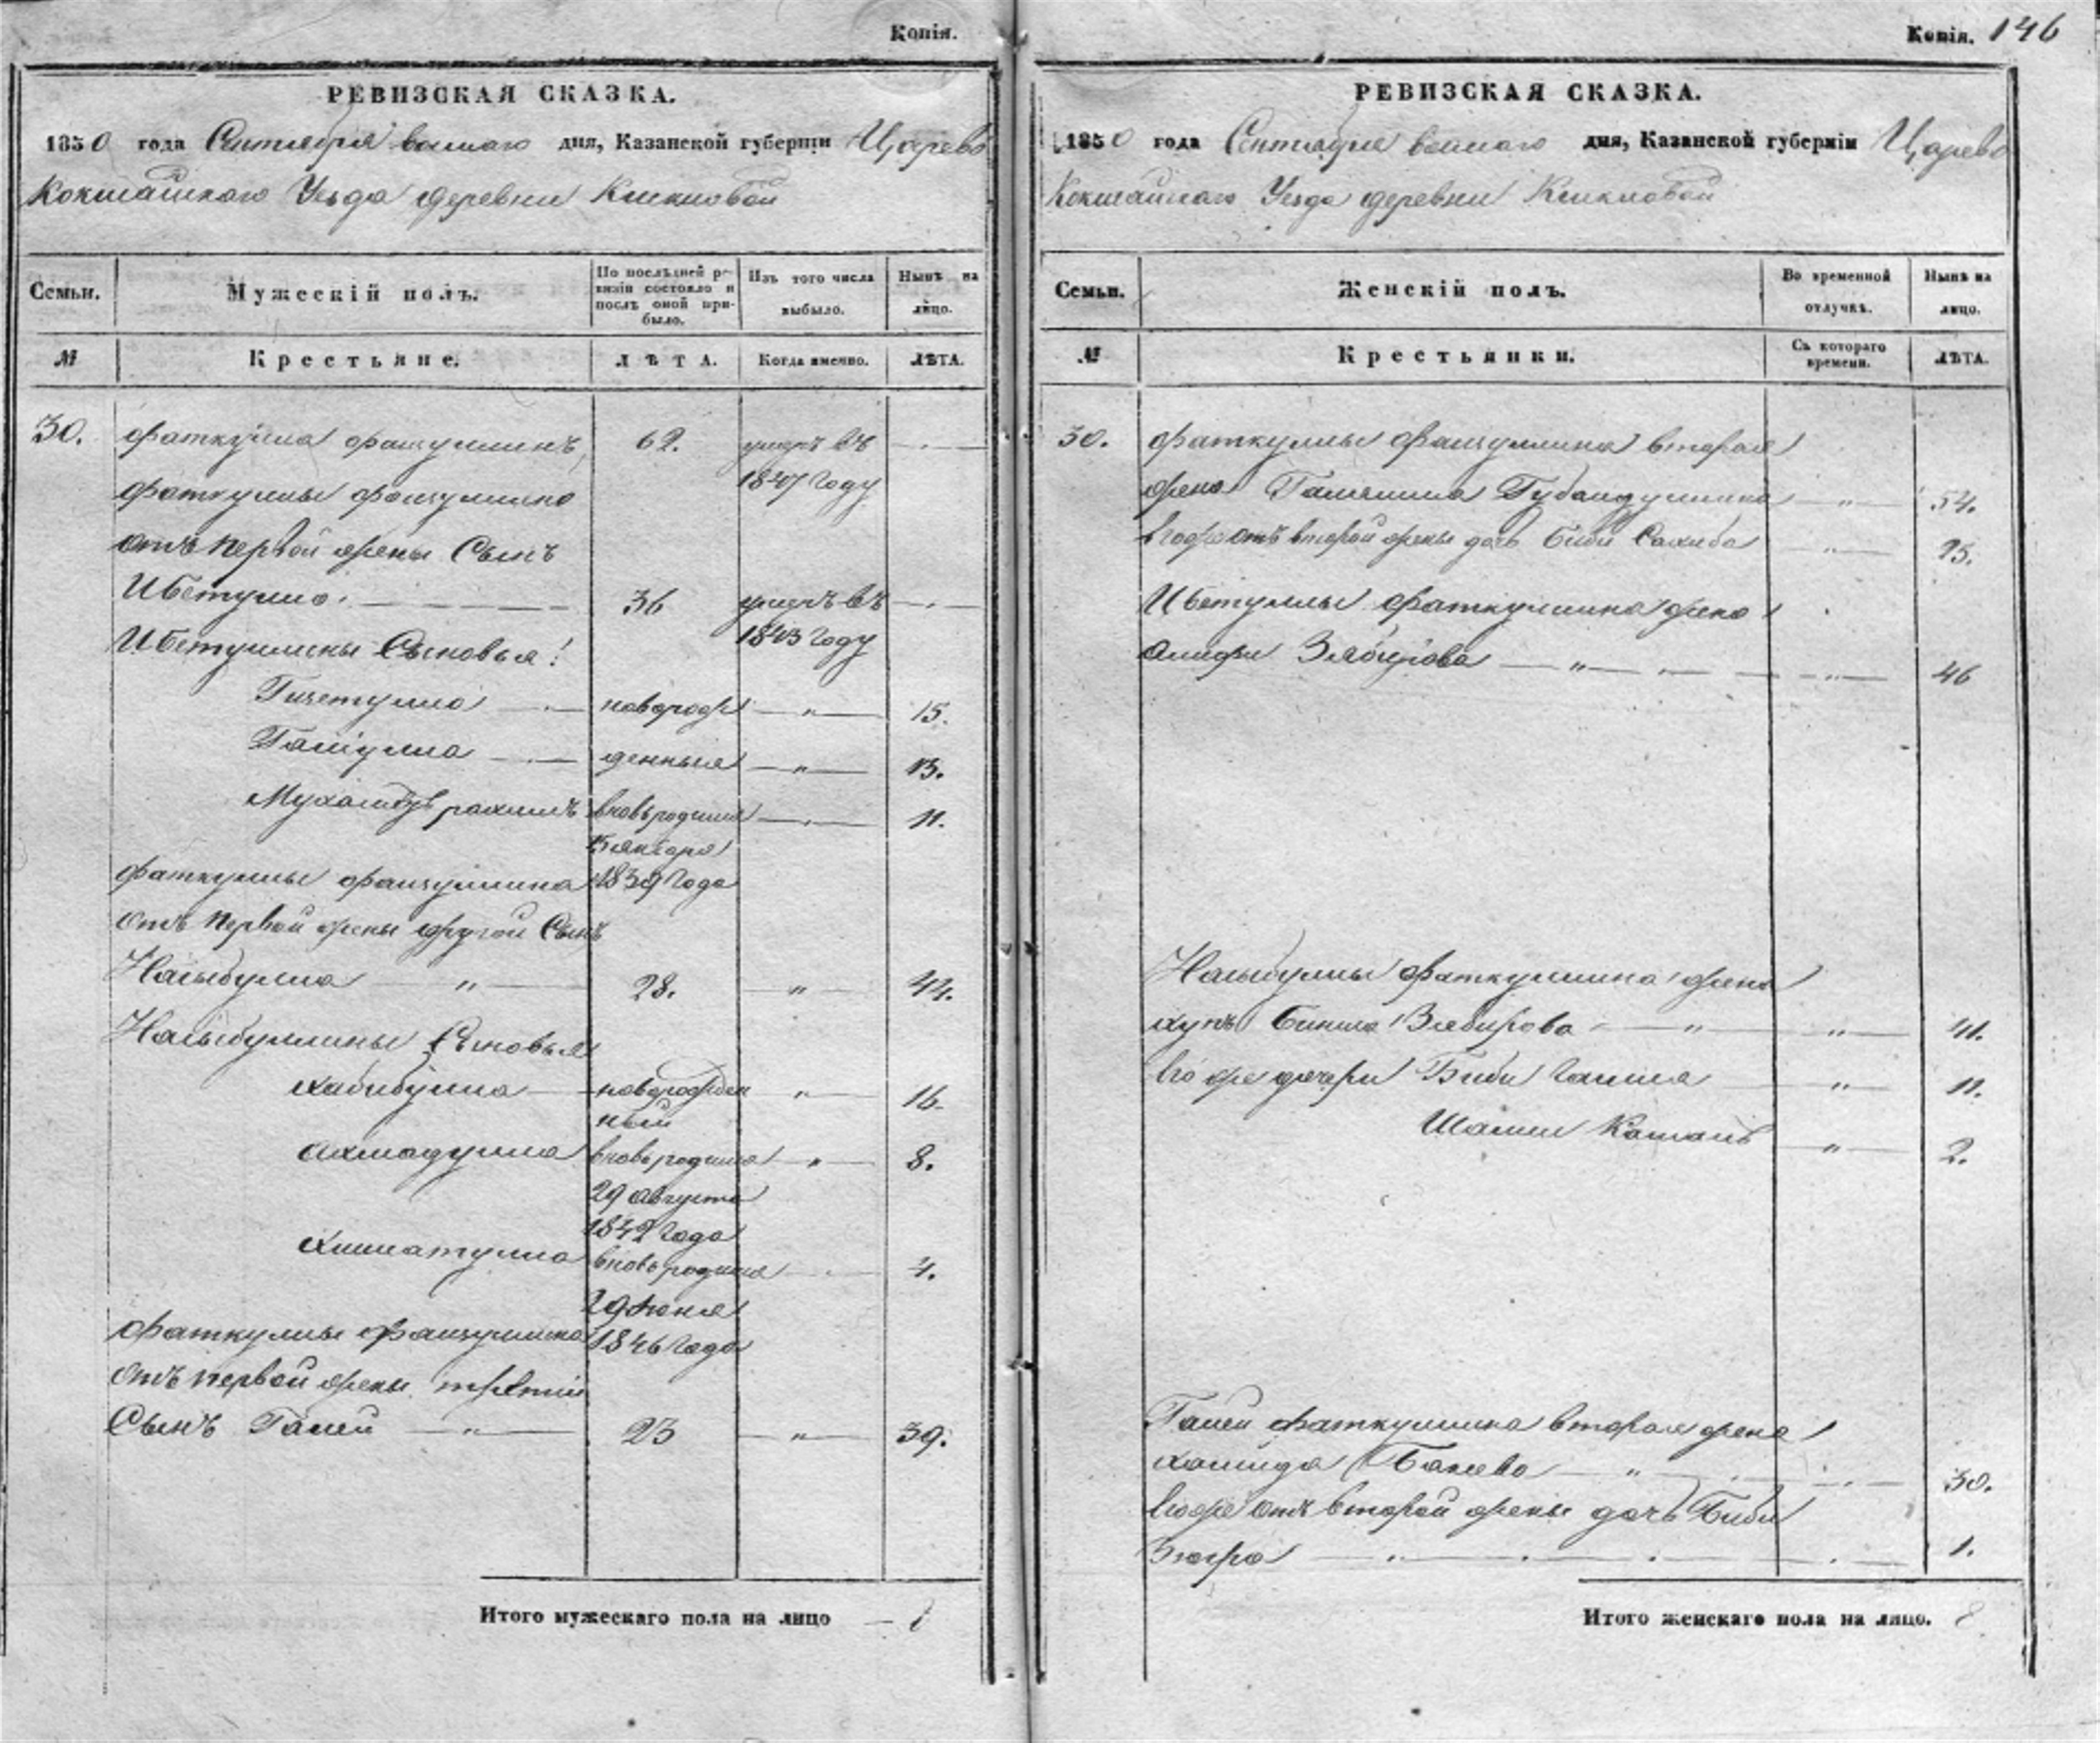 Копія.
РЕВИЗСКАЯ СКАЗКА.
1850 года Сентября дня, Казанской губерніи Царево
Кокшайскаго Уезда деревни
Семьи.
Мужескій полъ.
По послѣдней ре-
визіи состояло и
послѣ оной при-
было.
Изъ того числа
выбыло.
Нынѣ на
лицо.
№
Крестьяне.
ЛѢТА.
Когда именно.
ЛѢТА.
30. Фаткулла Фаизуллинъ 62. умеръ въ
1847 году
Фаткуллы Фаизуллина
отъ первой жены Сынъ
Ибетулла 36 умеръ въ
1843 году
Ибетуллины Сыновья:
Гизетулла новорож 15.
Галіулла денныя 13.
рахимъ вновь родился 11.
января
1839 года
Фаткуллы Фаизуллина
отъ первой жены другой Сынъ
Насыбулла " 28. " 44.
Насыбуллины Сыновья
Хабибулла новорожден " 16.
ный
Ахмадулла вновь родился " 8.
29 августа
1842 года
Хисматулла вновь родился 4.
29 июня
1846 года
Фаткуллы Фаизуллина
отъ первой жены третій
Сынъ Галей " 23 " 39.
Итого мужескаго пола на лицо 8
Копія. 146
РЕВИЗСКАЯ СКАЗКА.
1850 года Сентября дня, Казанской губерніи Царево
Кокшайскаго Уезда деревни
Семьи.
Женскій полъ.
Во временной
отлучкѣ.
Нынѣ на
лицо.
№
Крестьянки.
Съ котораго
времени.
ЛѢТА.
30. Фаткуллы Фаизуллина вторая
жена Губайдуллина " 54.
его же отъ второй жены дочь Биби Сахиба " 15.
Ибетуллы Фаткуллина жена
Зябирова " " 46
Насыбуллы Фаткуллина жена
Зябирова " " 41.
его же дочери Биби " 11.
Шамси Камаль " 2.
Галея Фаткуллина вторая жена
Хамида Бакеева " 30.
его же отъ второй жены дочь Биби
Зюгра 1.
Итого женскаго пола на лицо. 8